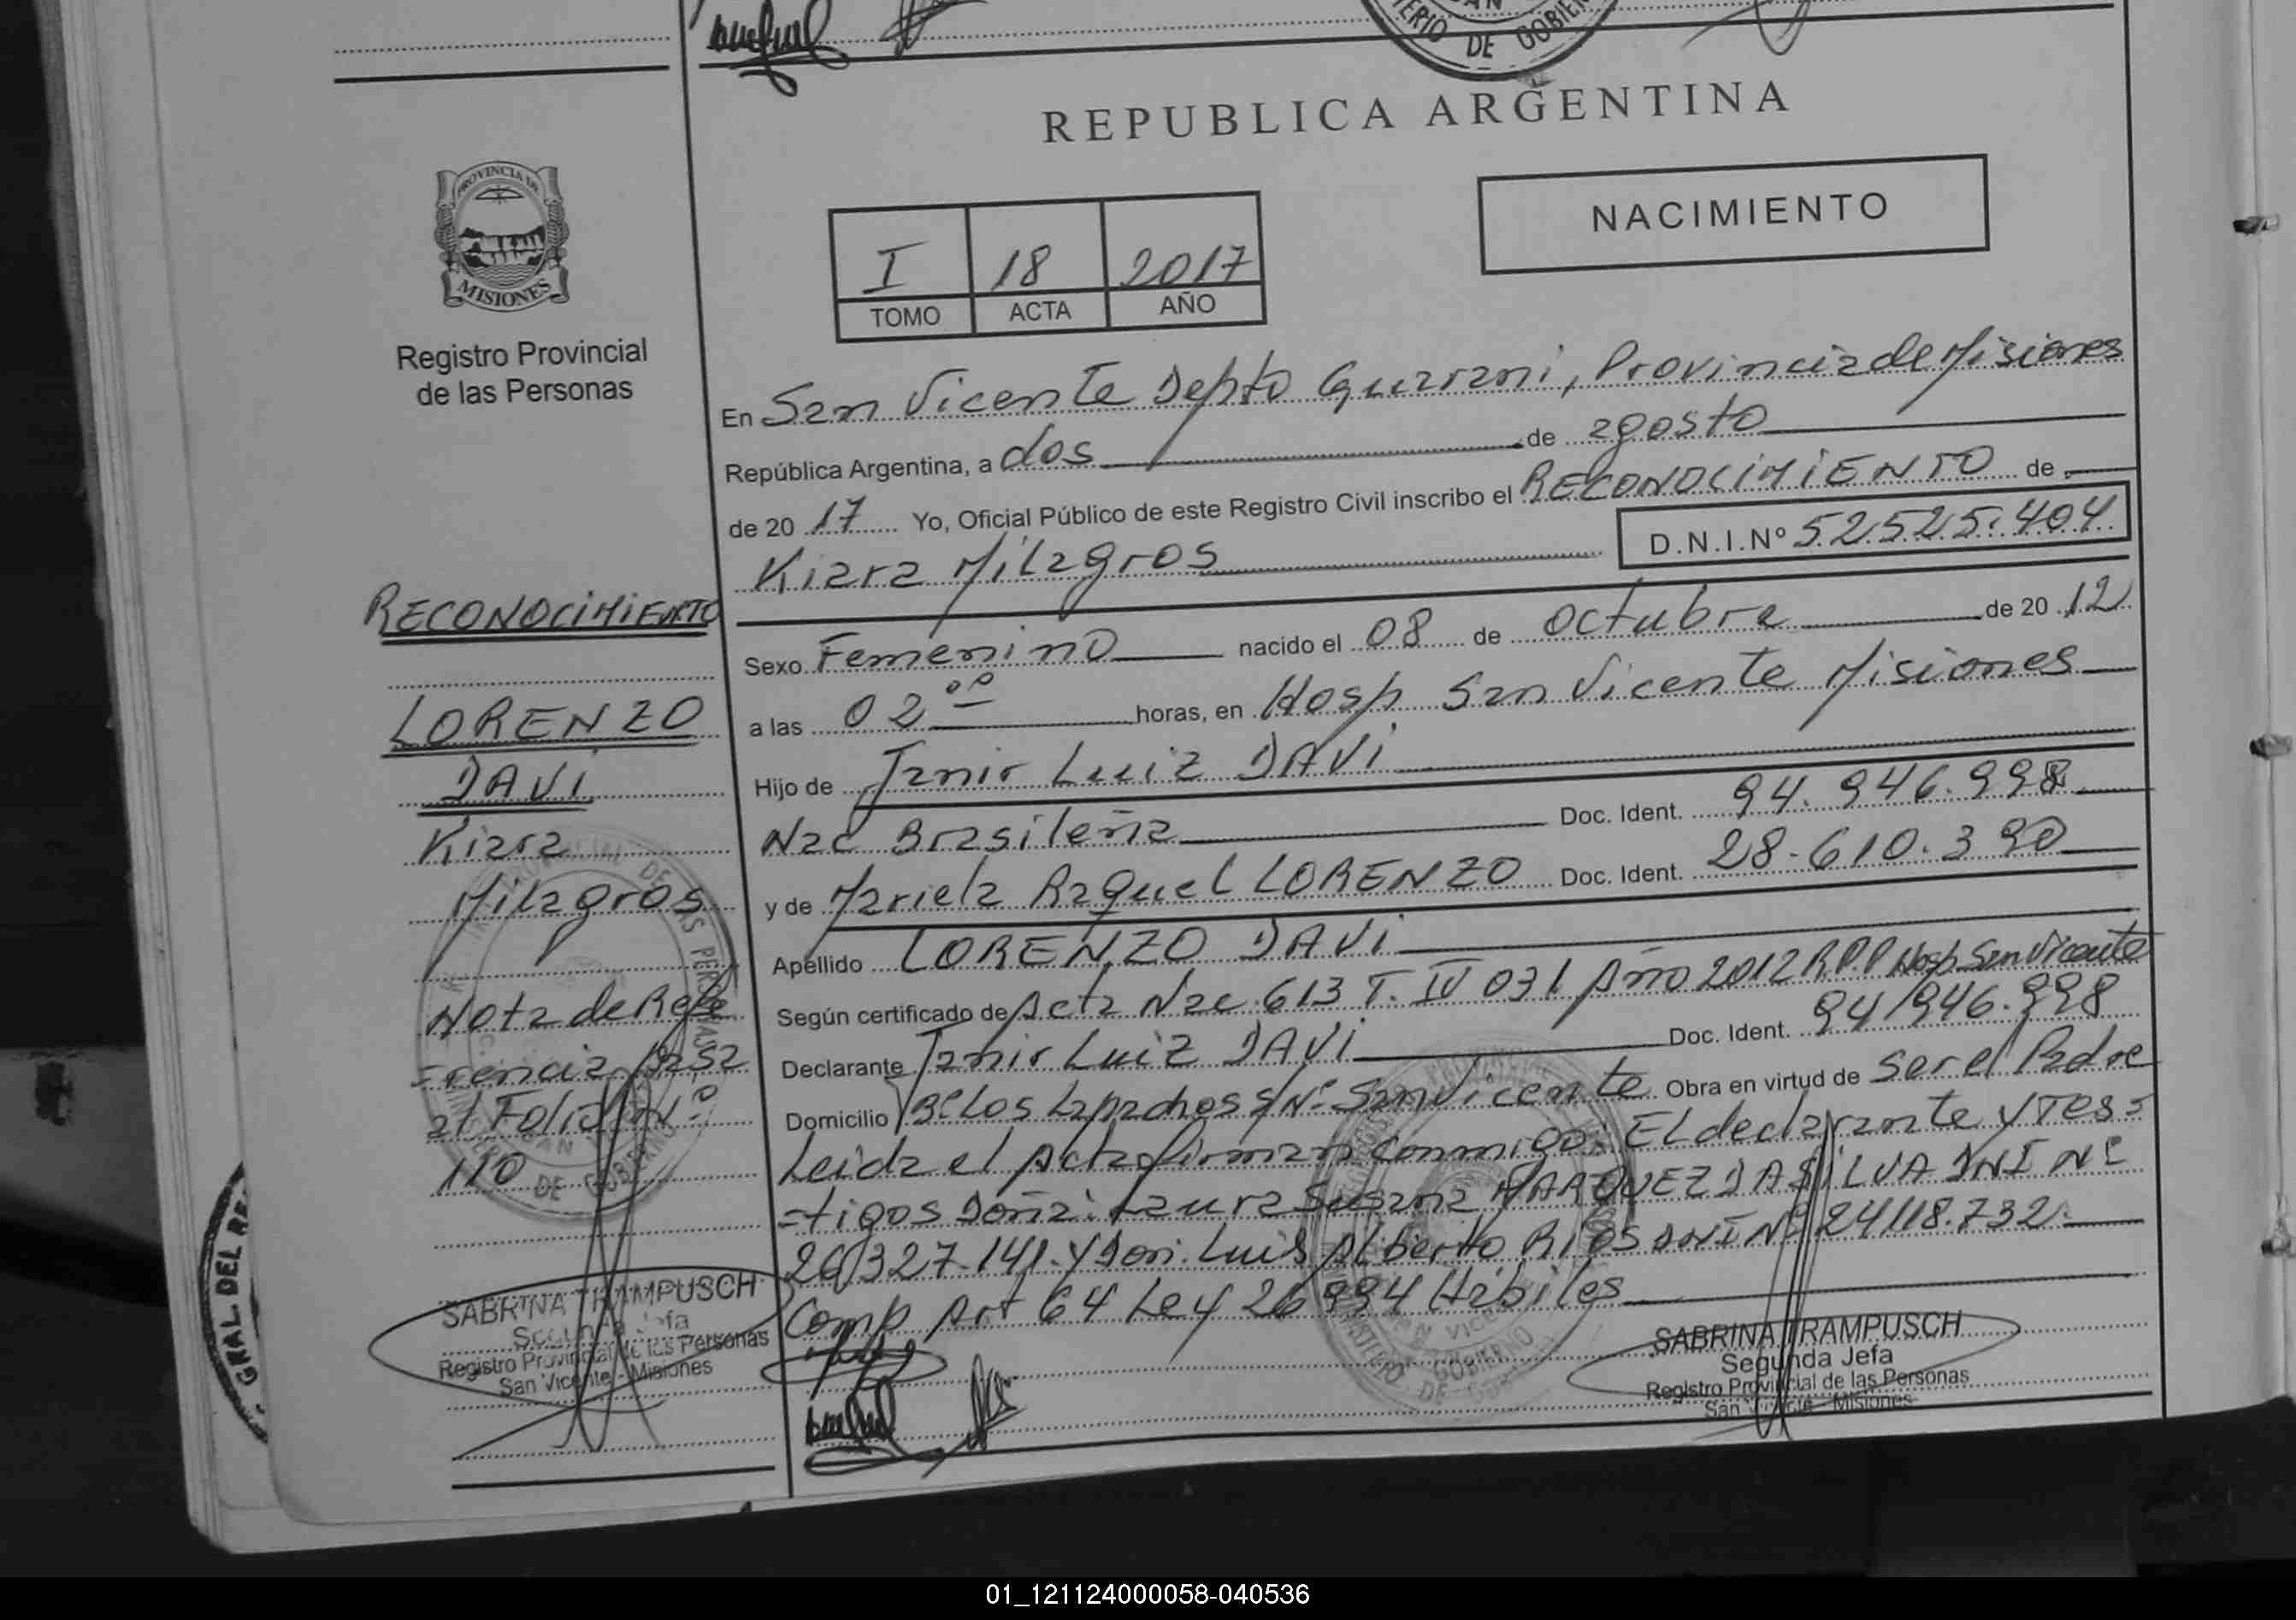 TERIO DE GOBIERN
REPUBLICA ARGENTINA
PROVINCIA DE
MISIONES
Registro Provincial
de las Personas
NACIMIENTO
I 18 2017
TOMO ACTA AÑO
En San Vicente Depto Guarani, Provincia de Misiones
República Argentina, a dos de agosto
de 20 17 Yo, Oficial Público de este Registro Civil inscribo el RECONOCIMIENTO de
Kiara Milagros D.N.I.Nº 52.525.404
Sexo Femenino nacido el 08 de octubre de 20 12
a las 02 00 horas, en Hosp. San Vicente Misiones
Hijo de Janir Luiz DAVI
Nac Brasileña Doc. Ident. 94.946.998
y de Mariela Raquel LORENZO Doc. Ident. 28.610.390
Apellido LORENZO DAVI
Según certificado de Acta Nac. 613 T. IV 031 Año 2012 R.P.P Hosp San Vicente
Declarante Janir Luiz DAVI Doc. Ident. 94.946.998
Domicilio Bº Los Lapachos S/Nº San Vicente Obra en virtud de ser el Padre
Leida el Acta firman conmigo: El declarante y tes=
=tigos Doña: Laura Susana MARQUEZ DA SILVA DNI Nº
26.327.141. Y Don: Luis Alberto RIOS DNI Nº 24.118.732.
Comp Art 64 Ley 26994 Hábiles
SABRINA TRAMPUSCH
Segunda Jefa
Registro Provincial de las Personas
San Vicente - Misiones
RECONOCIMIENTO
LORENZO
DAVI
Kiara
Milagros
Nota de Refe
=rencia pasa
al Folio Nº
110
SABRINA TRAMPUSCH
Segunda Jefa
Registro Provincial de las Personas
San Vicente - Misiones
GRAL DEL RE
01_121124000058-040536